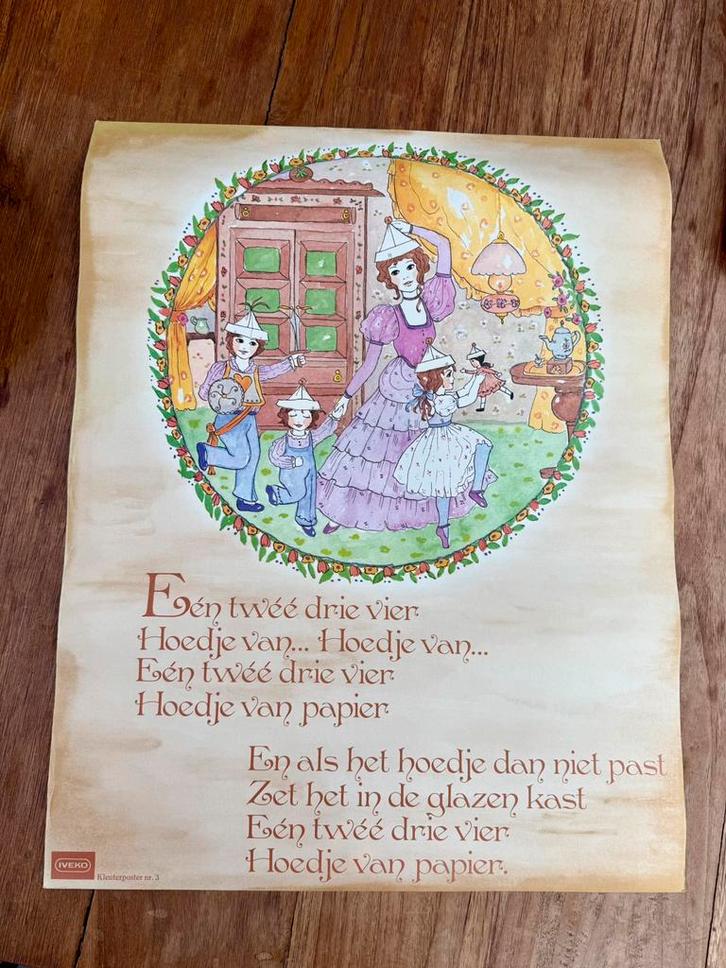 Eén twéé drie vier
Hoedje van... Hoedje van...
Eén twéé drie vier
Hoedje van papier
En als het hoedje dan niet past
Zet het in de glazen kast
Eén twéé drie vier
Hoedje van papier.
IVEKO
Kleuterposter nr. 3